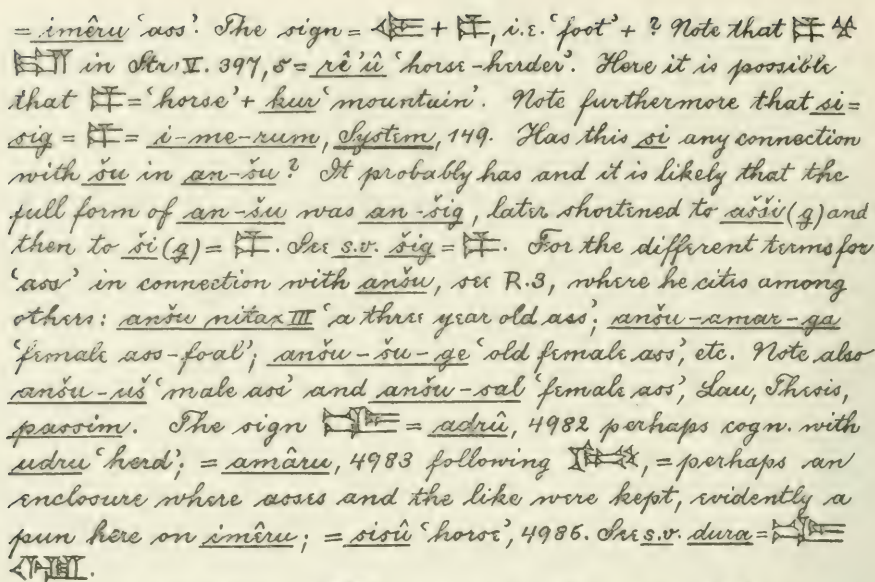 = imêru ‘ass’. The sign = + , i.e. ‘foot’ + ? Note that
in Str. V. 397, 5 = rê’û ‘horse-herder’. Here it is possible
that = ‘horse’ + kur ‘mountain’. Note furthermore that si=
sig = = i-me-rum, System, 149. Has this si any connection
with šu in an-šu? It probably has and it is likely that the
full form of an-šu was an-šig, later shortened to ašši(g) and
then to ši(g) = . See s.v. šig = . For the different terms for
‘ass’ in connection with anšu, see R.3, where he cites among
others: anšu nitax III ‘a three year old ass’; anšu-amar-ga
‘female ass-foal’; anšu-šu-ge ‘old female ass’, etc. Note also
anšu-uš ‘male ass’ and anšu-sal ‘female ass’, Lau, Thesis,
passim. The sign = adrû, 4982 perhaps cogn. with
udru ‘herd’; = amâru, 4983 following , = perhaps an
enclosure where asses and the like were kept, evidently a
pun here on imêru; = sisû ‘horse’, 4986. See s.v. dura =
.